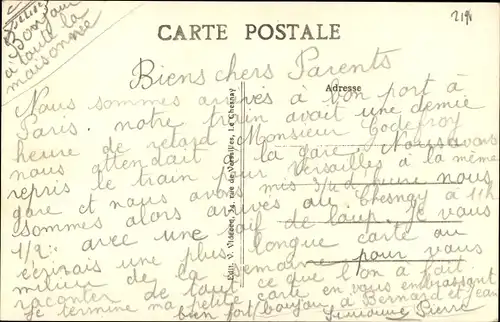 Bonjour
à toute la
maisonnée
219
CARTE POSTALE
Biens chers Parents
Adresse
Nous sommes arrivés à bon port à
Paris notre train avait une demie
heure de retard Monsieur Godefroy
nous attendait à la gare. Nous avons
repris le train pour Versailles à la même
gare et nous avons mis 3/4 d'heure nous
sommes alors arrivés au Chesnay à 11h
1/2. avec une soif de loup. Je vous
écrirais une plus longue carte au
milieu de la semaine pour vous
raconter de tout ce que l'on a fait
Je termine ma petite carte en vous embrassant
bien fort/bonjour à Bernard et Jean
Simianne Pierre
Edit. V. Viscère, 34, rue de Versailles, Le Chesnay